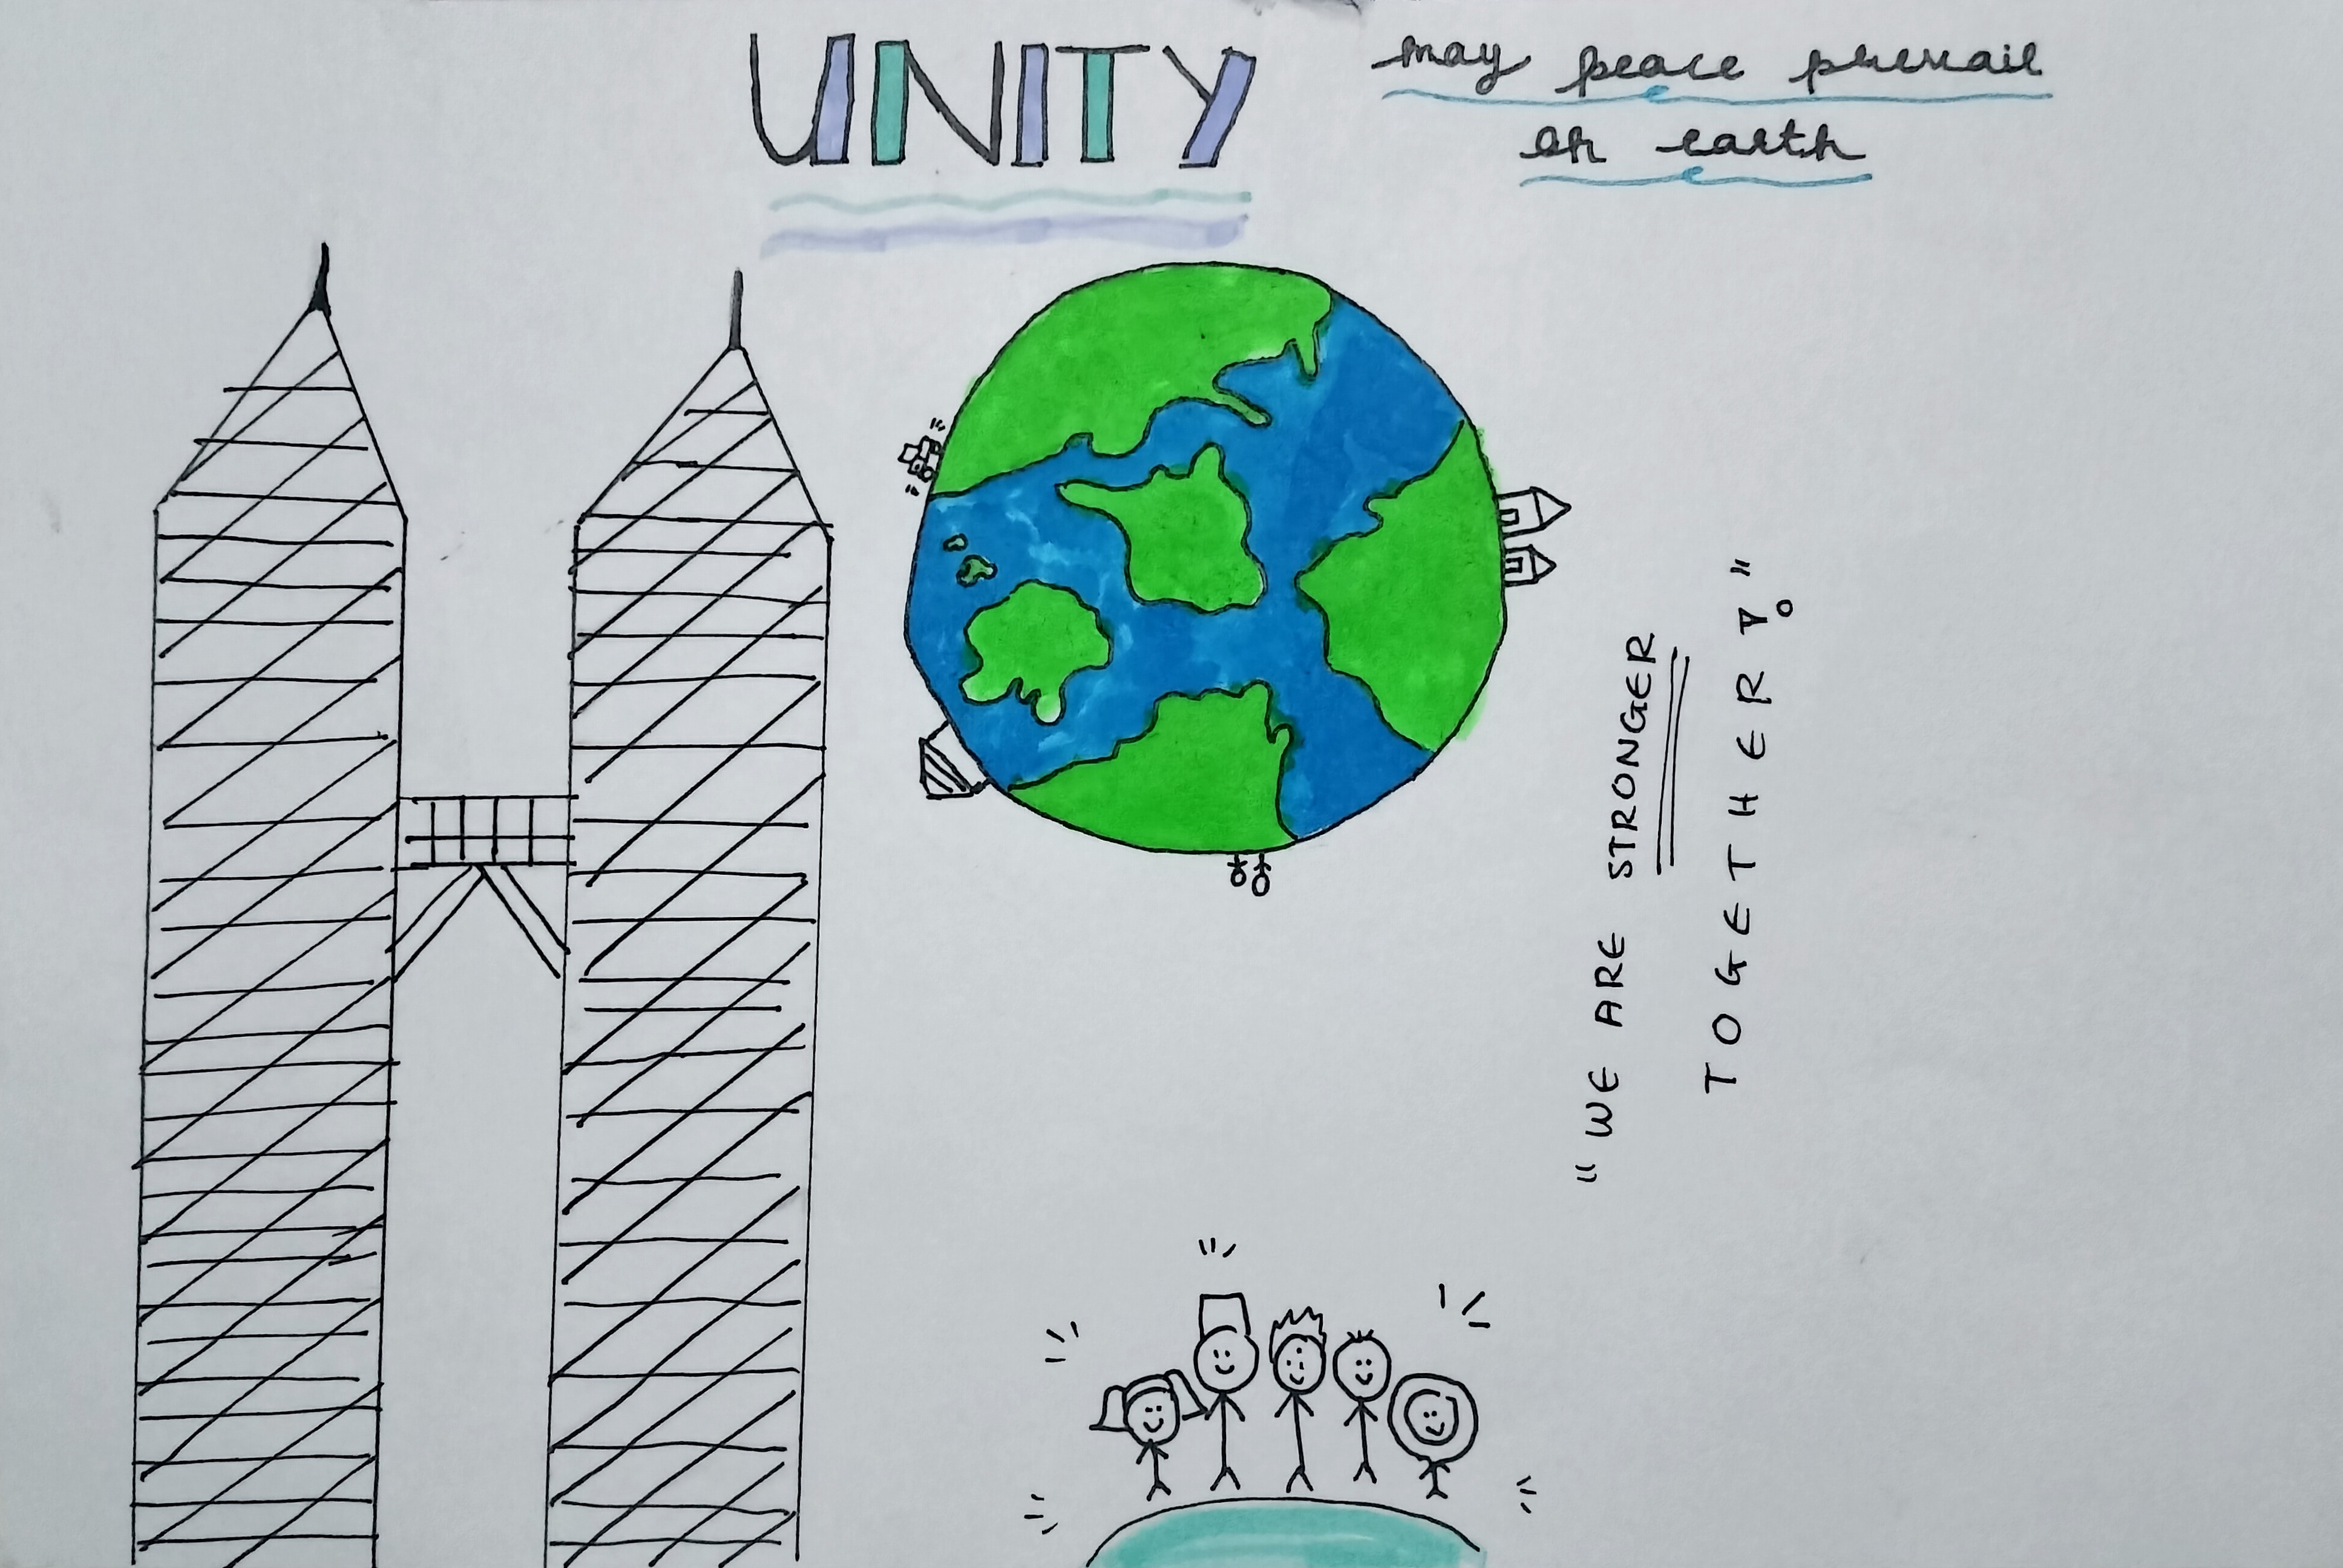 UNITY
may peace prevail
on earth
"WE ARE STRONGER
TOGETHER!"